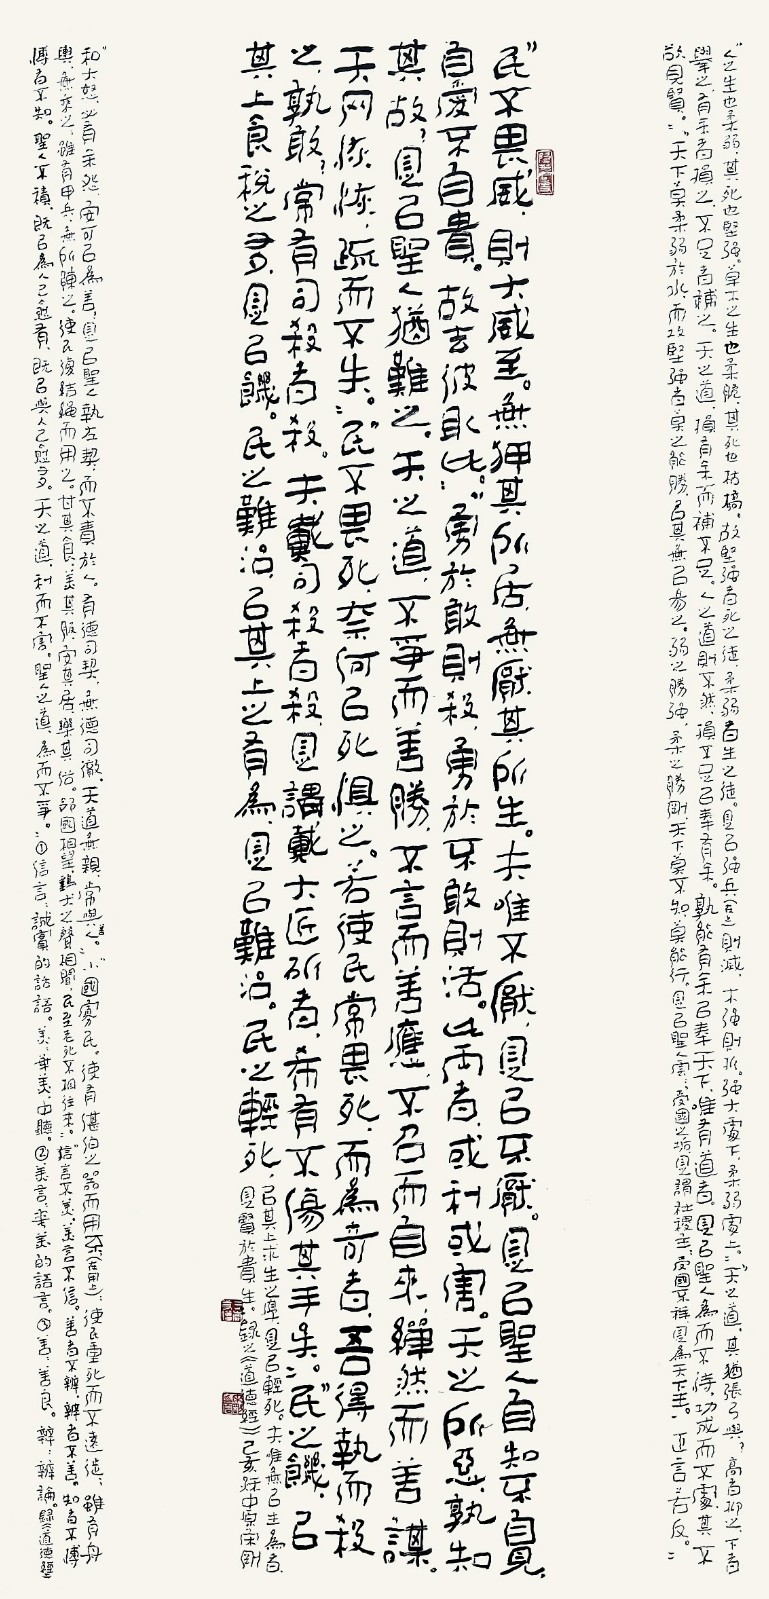 "人之生也柔弱，其死也堅强。草木之生也柔脆，其死也枯槁。故堅强者死之徒，柔弱者生之徒。是以强兵則滅，木强則折。强大處下，柔弱處上。""天之道，其猶張弓與？高者抑之，下者
舉之，有余者損之，不足者補之。天之道，損有余而補不足。人之道則不然，損不足以奉有余。孰能有余以奉天下，唯有道者。是以聖人為而不恃，功成而不處，其不
欲見賢。""天下莫柔弱於水，而攻堅强者莫之能勝，以其無以易之。弱之勝强，柔之勝剛，天下莫不知，莫能行。是以聖人雲：受國之垢，是謂社稷主；受國不祥，是為天下王。正言若反。"
"民不畏威，則大威至。無狎其所居，無厭其所生。夫唯不厭，是以不厭。是以聖人自知不自見，
自愛不自貴。故去彼取此。""勇於敢則殺，勇於不敢則活。此兩者，或利或害。天之所惡，孰知
其故？是以聖人猶難之。天之道，不爭而善勝，不言而善應，不召而自來，繟然而善謀。
天网恢恢，疏而不失。""民不畏死，奈何以死惧之。若使民常畏死，而為奇者，吾得執而殺
之，孰敢？常有司殺者殺。夫戴司殺者殺，是謂戴大匠斫者，希有不傷其手矣。""民之饑，以
其上食稅之多，是以饑。民之難治，以其上之有為，是以難治。民之輕死，
以其上求生之厚，是以輕死。夫唯無以生為者，
是賢於貴生。錄之《道德經》己亥秋中原宋剛
"和大怨，必有余怨，安可以為善，是以聖人執左契，而不責於人。有德司契，無德司徹。天道無親，常與善人。""小國寡民。使有什伯之器而不用，使民重死而不遠徙，雖有舟
輿，無乘之，雖有甲兵，無所陳之。使民復結繩而用之。甘其食，美其服，安其居，樂其俗。鄰國相望，雞犬之聲相聞，民至老死不相往來。""信言不美，美言不信。善者不辯，辯者不善。知者不博
博者不知。聖人不積，既以為人己愈有，既以與人己愈多。天之道，利而不害。聖人之道，為而不爭。"①信言：誠實的話語。美：華美，中聽。②美言：華美的語言。③善：善良。辯：辯論。錄《道德經